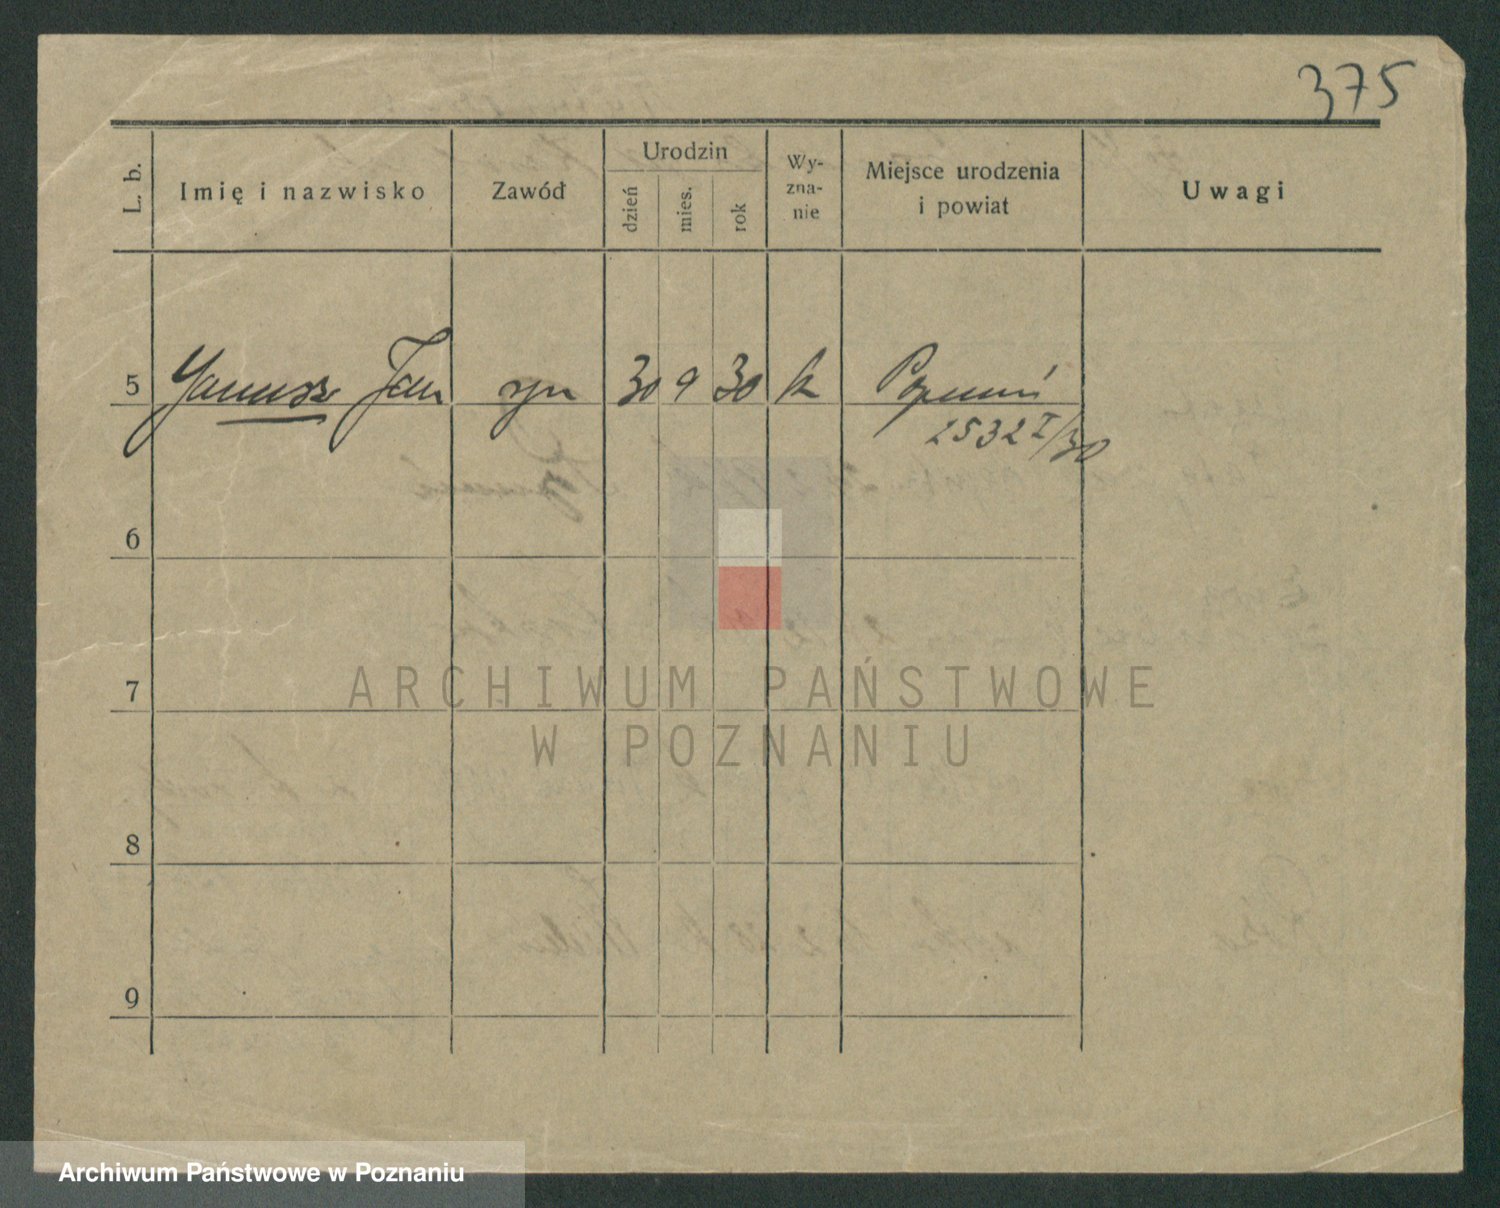 375
L. b. Imię i nazwisko Zawód Urodzin dzień mies. rok Wy- zna- nie Miejsce urodzenia i powiat Uwagi
5 Janusz Jan syn 30 9 30 k Poznań
2532 I/30
6
7
8
9
ARCHIWUM PAŃSTWOWE
W POZNANIU
Archiwum Państwowe w Poznaniu